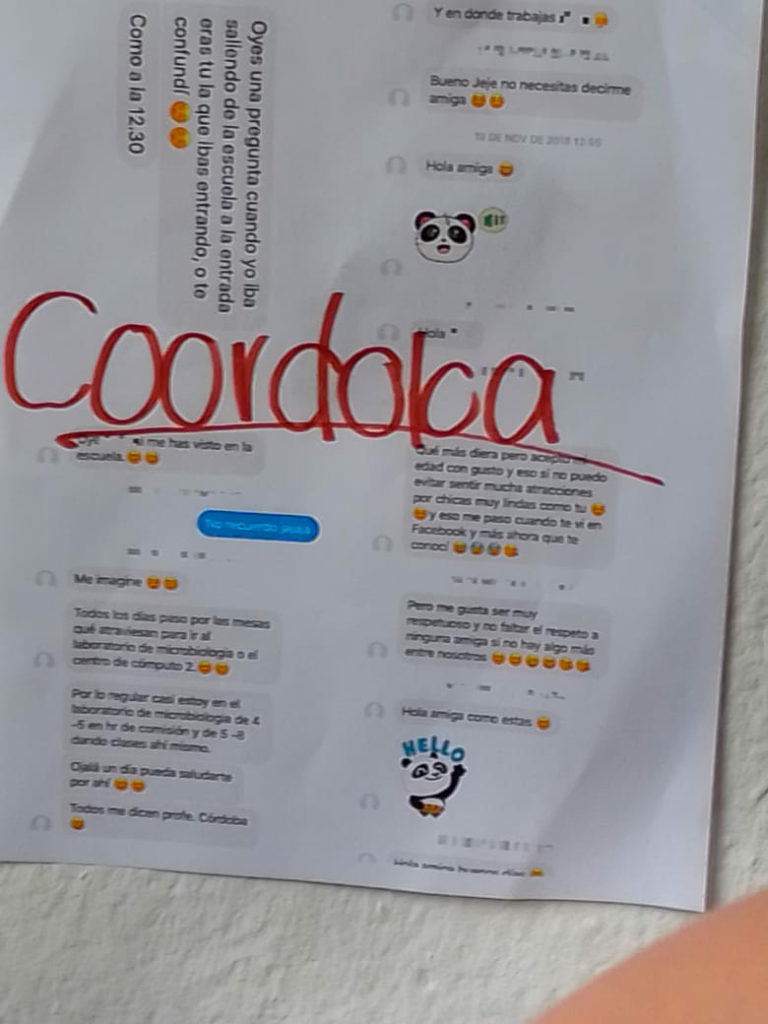 Oyes una pregunta cuando yo iba
saliendo de la escuela a la entrada
eras tu la que ibas entrando, o te
confundí 😊😊
Como a la 12.30
Y en donde trabajas
Bueno Jeje no necesitas decirme
amiga 😊😊
19 DE NOV DE 2018 12:55
Hola amiga 😊
Hola
Coordoba
si me has visto en la
escuela.😊😊
No recuerdo jajaja
Me imagine 😊😊
Todos los días paso por las mesas
qué atraviesan para ir al
laboratorio de microbiología o el
centro de cómputo 2.😊😊
Por lo regular casi estoy en el
laboratorio de microbiología de 4
-5 en hr de comisión y de 5 -8
dando clases ahí mismo.
Ojalá un día pueda saludarte
por ahí 😊😊
Todos me dicen profe. Córdoba
😊
Qué más diera pero acepto mi
edad con gusto y eso sí no puedo
evitar sentir mucha atracciones
por chicas muy lindas como tu 😊
😊y eso me paso cuando te vi en
Facebook y más ahora que te
conocí
Pero me gusta ser muy
respetuoso y no faltar el respeto a
ninguna amiga si no hay algo más
entre nosotros
Hola amiga como estas 😊
HELLO